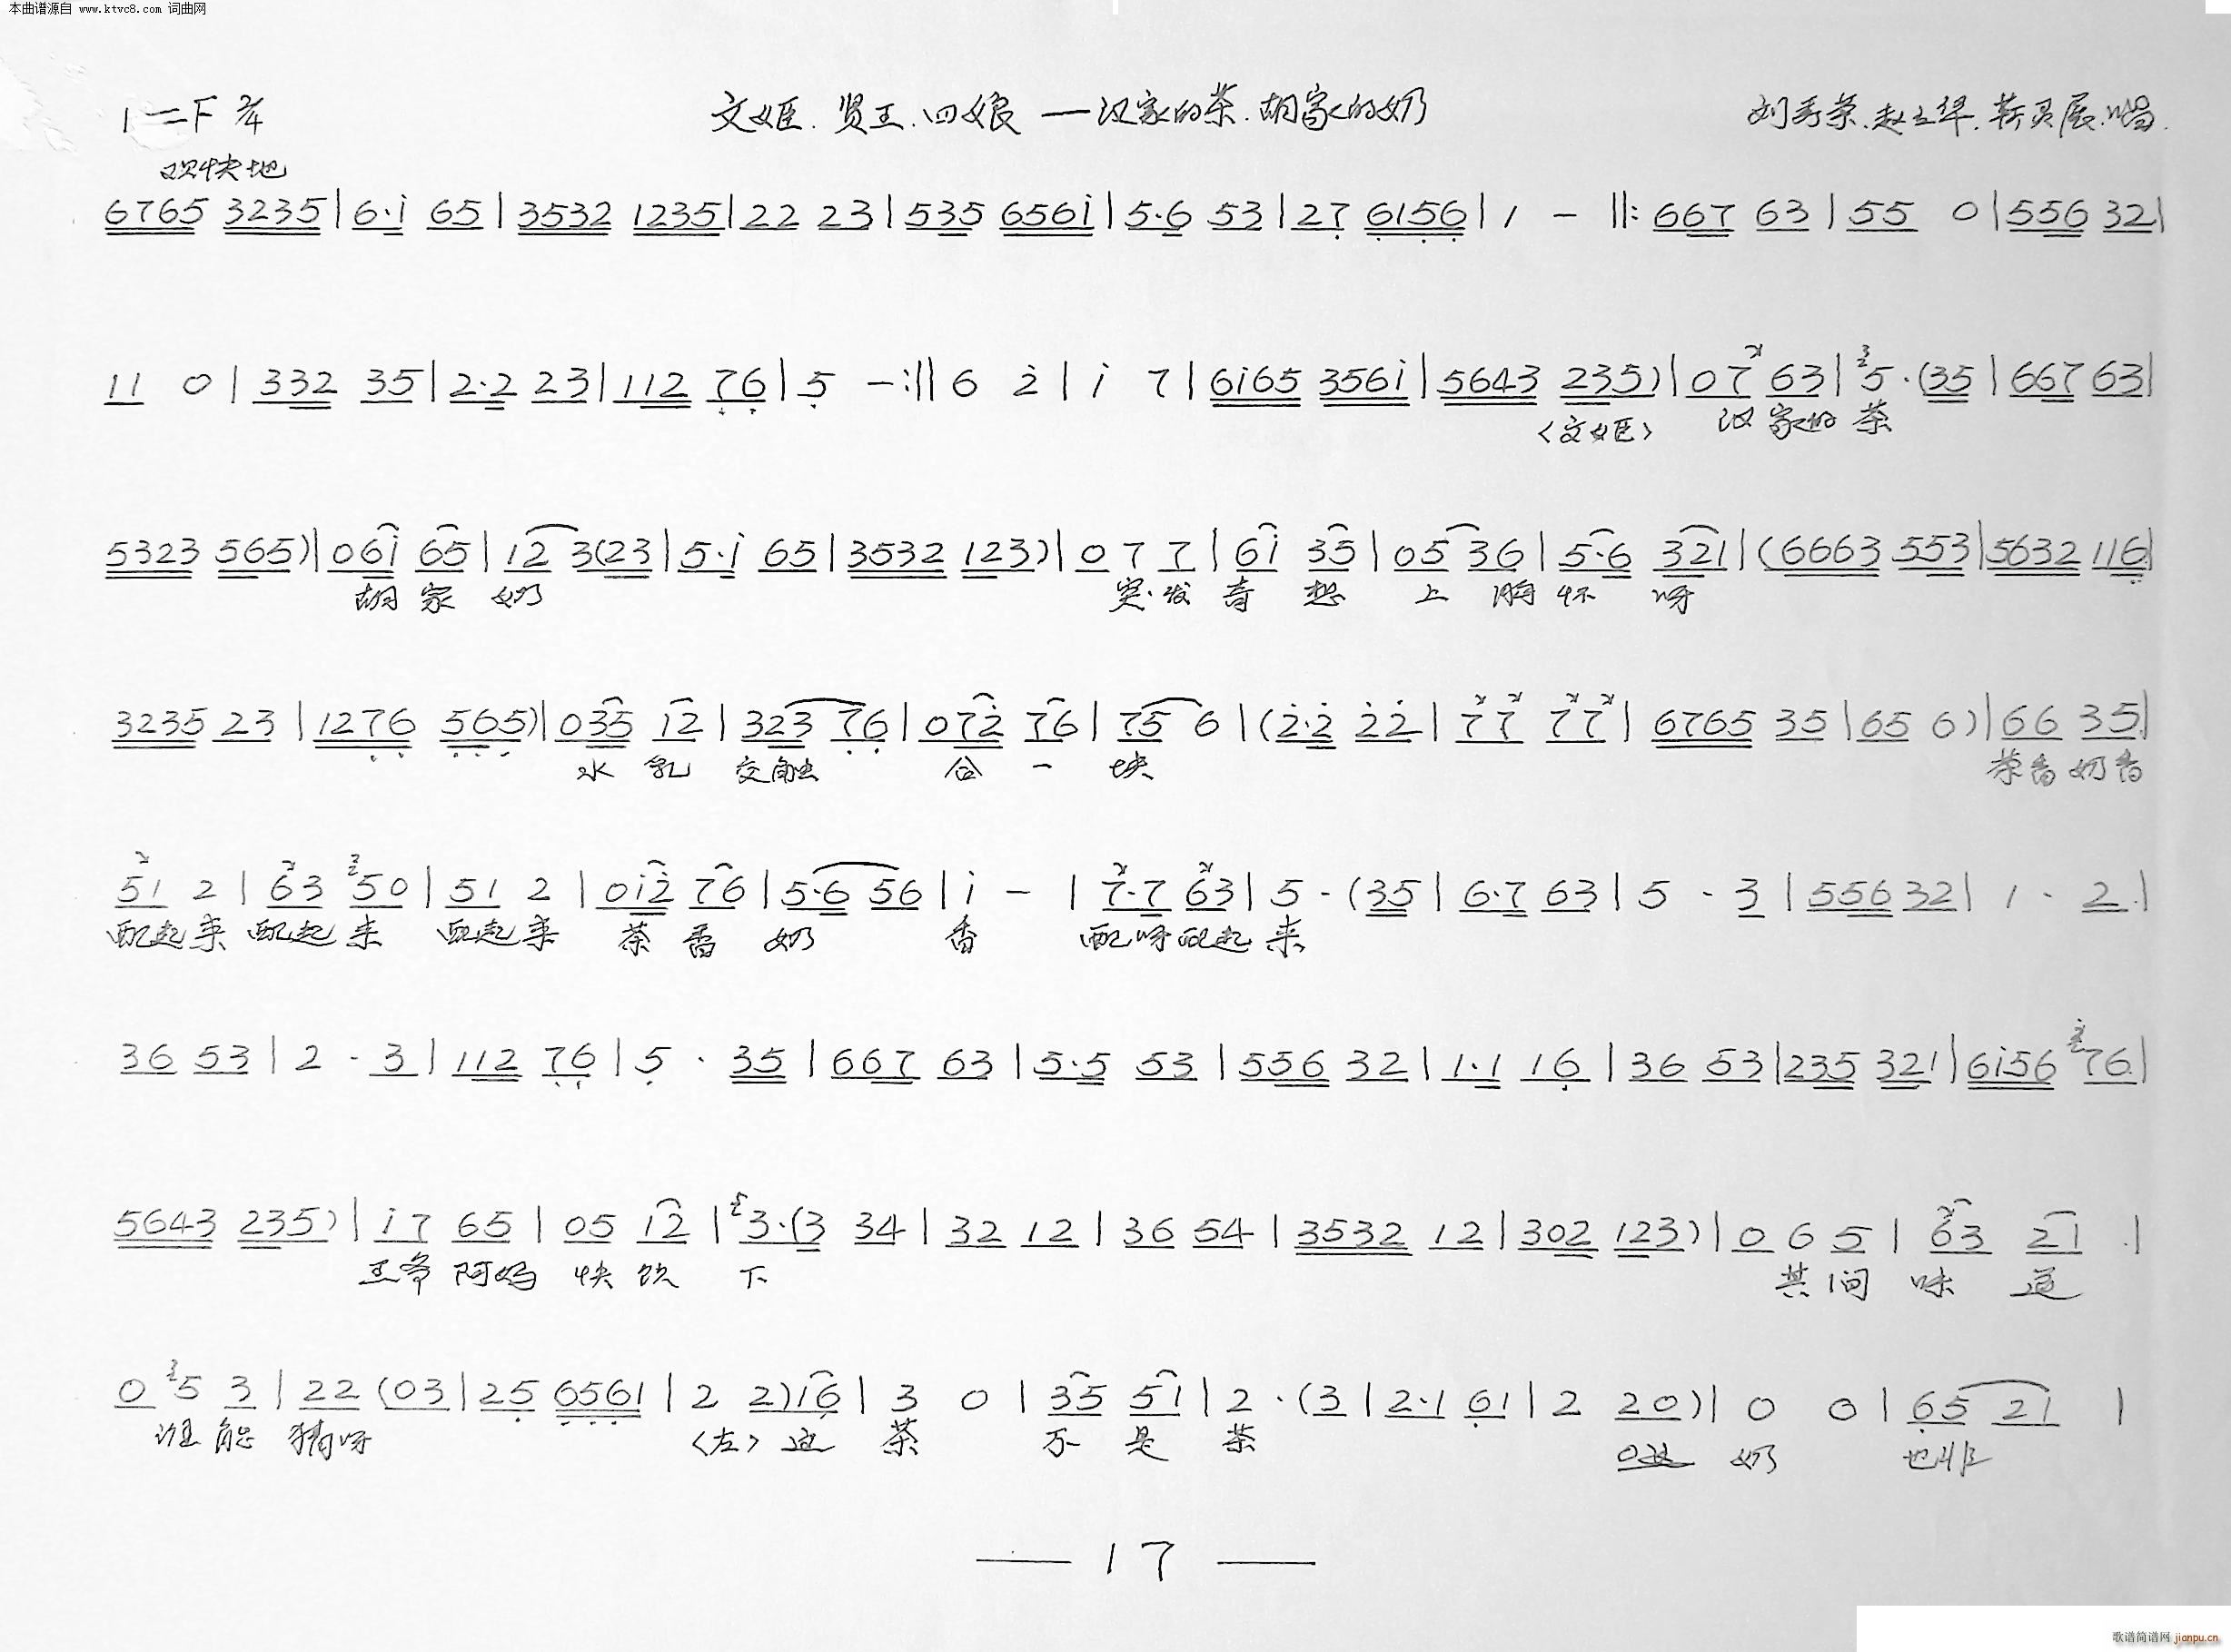 本曲谱源自 www.ktvc8.com 词曲网
1=F 2/4 文姬.贤王.四娘——汉家的茶.胡家的奶 唱.
欢快地
6765 3235 | 6·i 65 | 3532 1235 | 22 23 | 535 656i | 5·6 53 | 27 6156 | 1 - ||: 667 63 | 55 0 | 556 32 |
11 0 | 332 35 | 2·2 23 | 112 76 | 5 - :|| 6 2 | i 7 | 6i65 356i | 5643 235) | 07 63 | 5·(35 | 667 63 |
〈文姬〉 汉家的茶
5323 565) | 06i 65 | 12 3(23 | 5·i 65 | 3532 123) | 0 7 7 | 6i 35 | 05 36 | 5·6 321 | (6663 553 | 5632 116 |
胡家奶 突发奇想上胸怀呀
3235 23 | 1276 565) | 035 12 | 323 76 | 072 76 | 75 6 | (2·2 22 | 77 77 | 6765 35 | 65 6) | 66 35 |
水乳交融合一块 茶香奶香
51 2 | 63 50 | 51 2 | 0i2 76 | 5·6 56 | i - | 7·7 63 | 5·(35 | 6·7 63 | 5·3 | 556 32 | 1·2 |
配起来配起来 配起来 茶香奶香 配呀配起来
36 53 | 2·3 | 112 76 | 5·35 | 667 63 | 5·5 53 | 556 32 | 1·1 16 | 36 53 | 235 321 | 6i56 76 |
5643 235) | i7 65 | 05 12 | 3·(3 34 | 32 12 | 36 54 | 3532 12 | 302 123) | 0 6 5 | 63 21 |
王爷阿妈快饮下 其间味道
0 5 3 | 22 (03 | 25 6561 | 2 2)16 | 3 0 | 35 51 | 2·(3 | 2·1 61 | 2 20) | 0 0 | 65 21 |
谁能猜呀 〈左〉这茶不是茶 奶 也非
— 17 —
歌谱简谱网 jianpu.cn